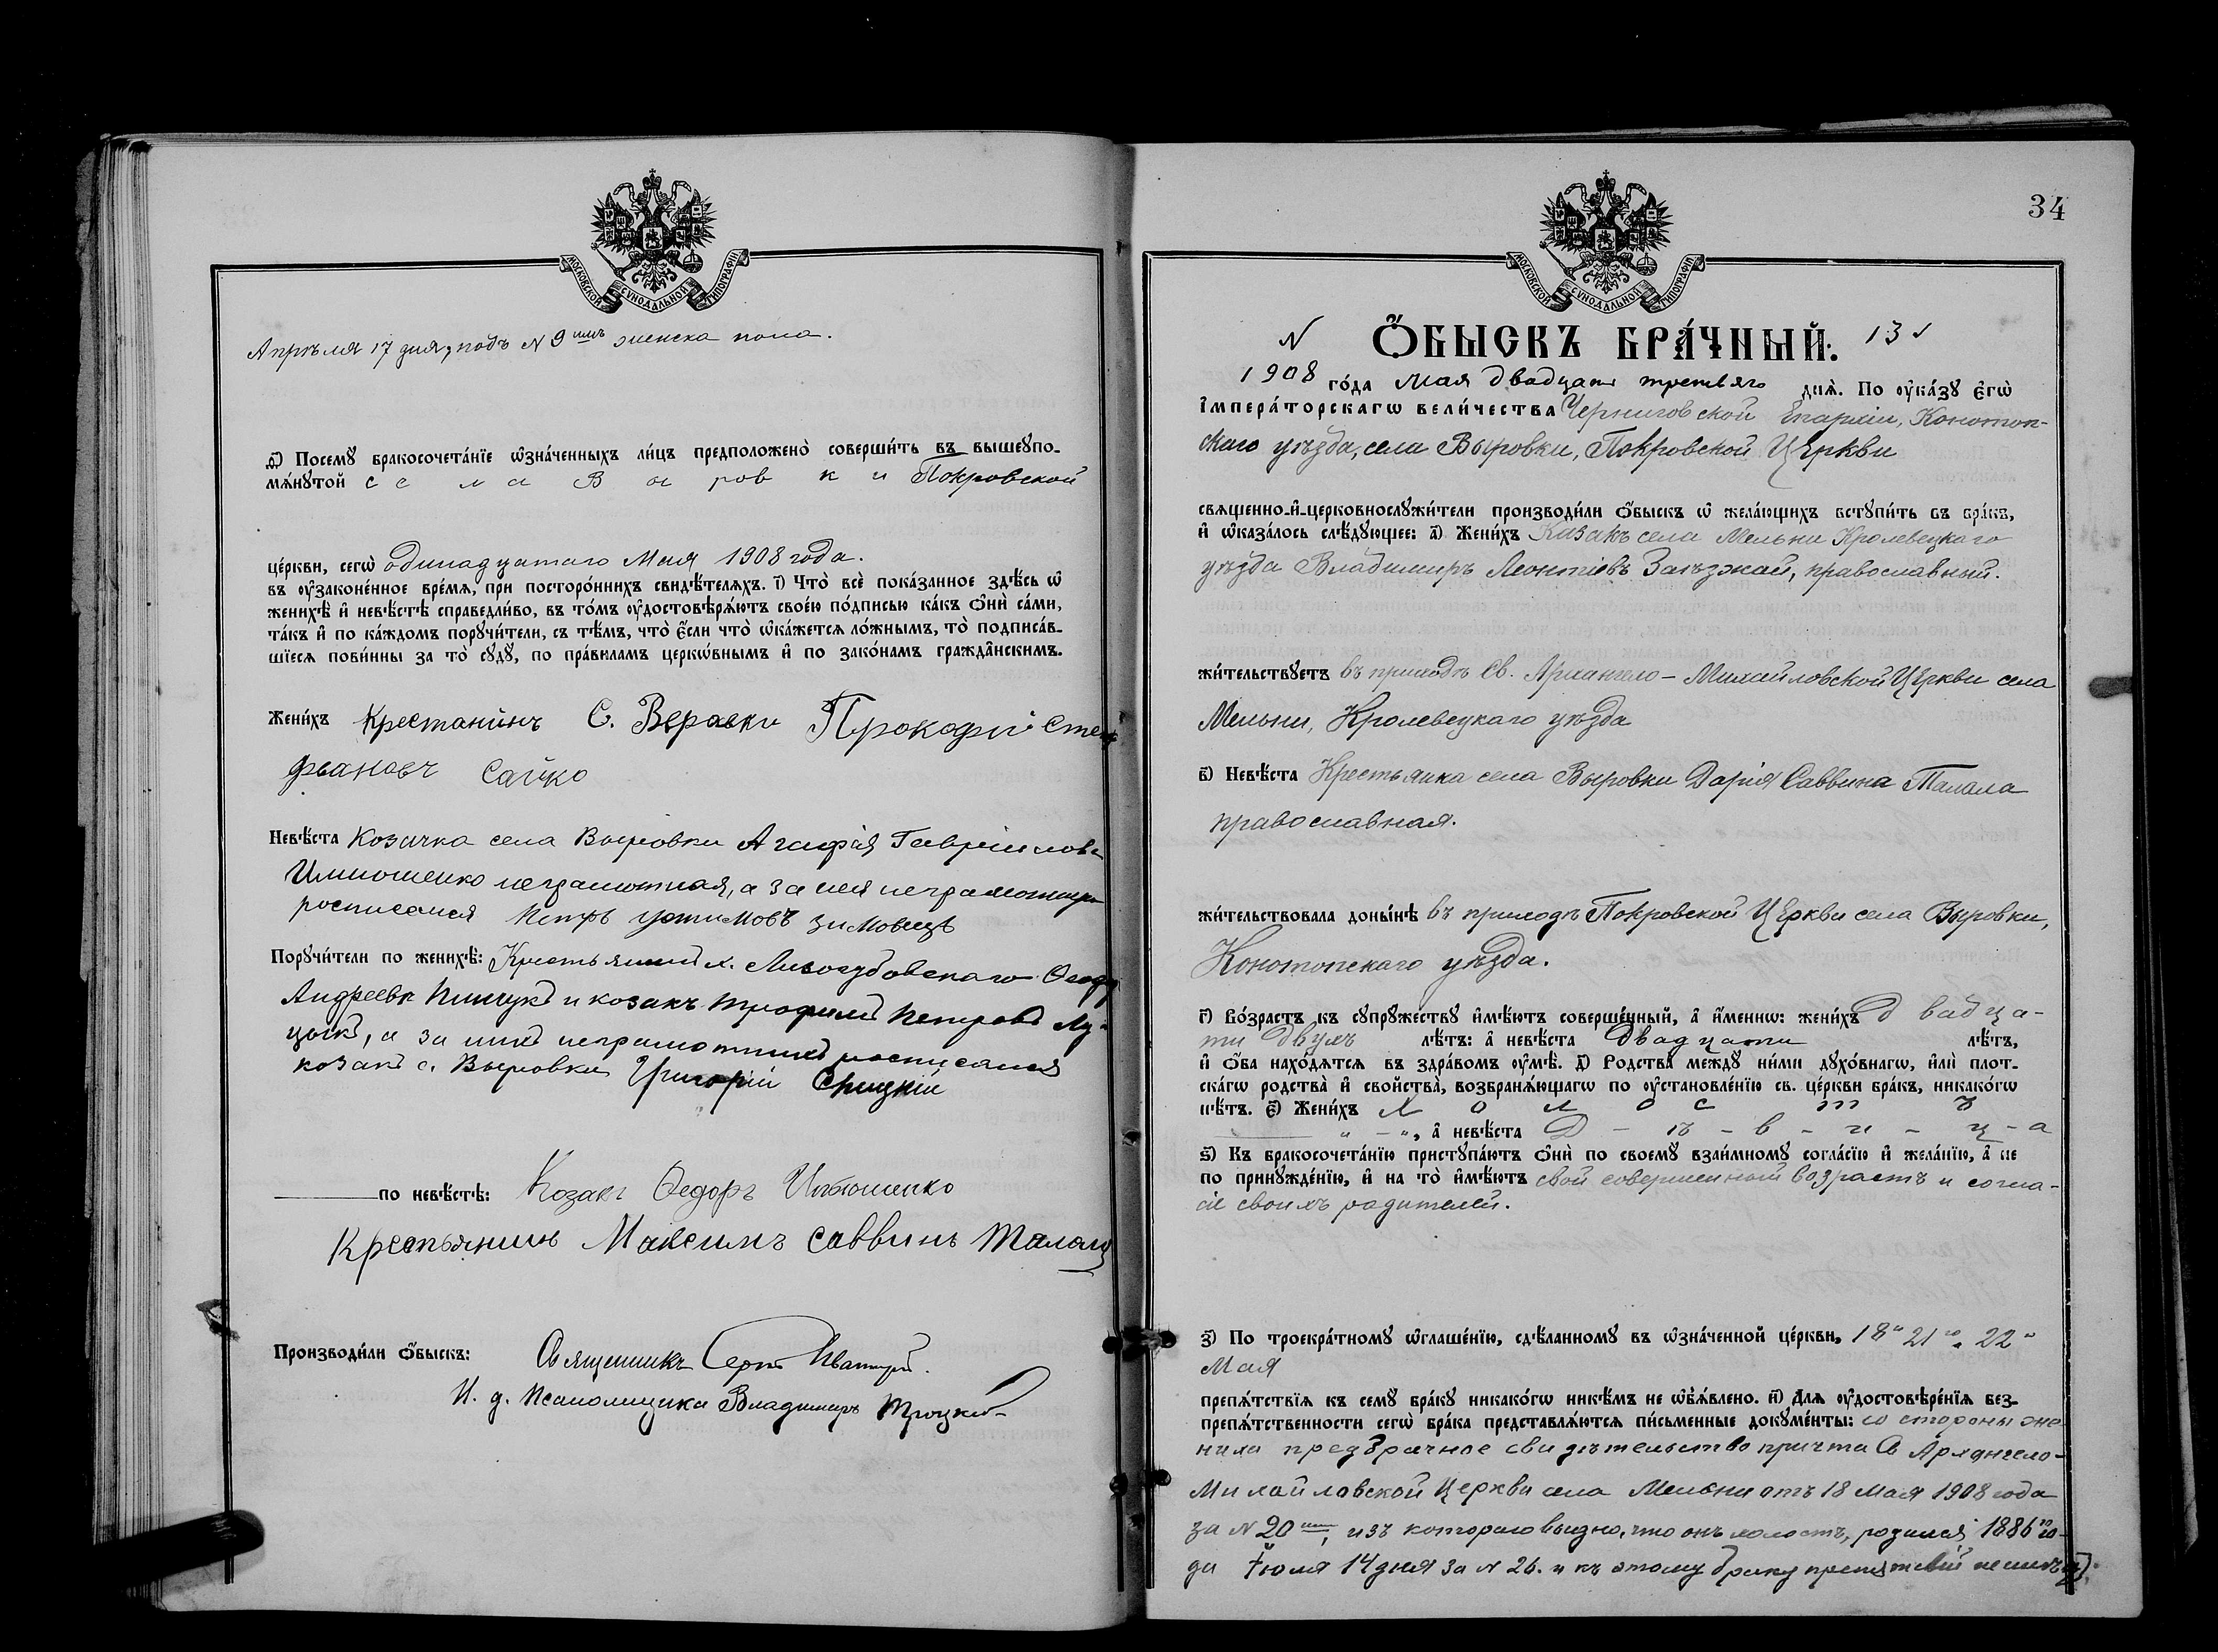 МОСКОВСКОЙ СѴНОДАЛЬНОЙ ТИПОГРАФІИ
Апрѣля 17 дня, подъ N 9 имъ женска пола.
ѳ҃) Посемꙋ бракосочета́нїе ѡ҆зна́ченныхъ ли́цъ предположено̀ соверши́ть въ вышеꙋпо-
мѧ́нꙋтой села Выровки Покровской
це́ркви, сегѡ̀ одинадцатаго Мая 1908 года.
въ ᲂу҆законе́нное вре́мѧ, при посторо́ннихъ свидѣ́телѧхъ. і҃) Что̀ всѐ пока́занное здѣ́сь ѡ҆
женихѣ̀ и҆ невѣ́стѣ справедли́во, въ то́мъ ᲂу҆достовѣрѧ́ютъ свое́ю по́дписью ка́къ ѻ҆нѝ са́ми,
та́къ и҆ по ка́ждомъ порꙋчи́тели, съ тѣ́мъ, что̀ є҆́сли что̀ ѡ҆ка́жетсѧ ло́жнымъ, то̀ подписа́в-
шїесѧ пови́нны за то̀ сꙋдꙋ̀, по пра́виламъ церкѡ́внымъ и҆ по зако́намъ гражда̑нскимъ.
Жени́хъ Крестанинъ С. Веровки Прокофій Сте
фьановъ Сайко
Невѣ́ста Козачка села Выровки Агафія Гавріилова
неграмотная, а за нея неграмотную
росписался Петръ Устимовъ Зимовець
Порꙋчи́тели по женихѣ̀: Крестьянинъ х. Лизогубовскаго Ѳеодоръ
Андреевъ и козакъ Трофимъ Петровъ Лу-
цыкъ, а за нихъ неграмотныхъ росписался
козакъ с. Выровки Григорій
по невѣ́стѣ: Козакъ Ѳедоръ
Крестьянинъ Максимъ Саввинъ Талала
Производи́ли ѻ҆́быскъ: Священникъ
И. д. Псаломщика Владимиръ Троцкій
34
МОСКОВСКОЙ СѴНОДАЛЬНОЙ ТИПОГРАФІИ
N Ѻ҆́БЫСКЪ БРА́ЧНЫЙ. 13
1908 го́да Мая двадцать третьяго днѧ̀. По ᲂу҆ка́зꙋ є҆гѡ̀
і҆мпера́торскагѡ вели́чества Черниговской Епархіи, Конотоп-
скаго уѣзда, села Выровки, Покровской Церкви
свѧщенно-и҆-церковнослꙋжи́тели производи́ли ѻ҆́быскъ ѡ҆ жела́ющихъ встꙋпи́ть въ бра́къ,
и҆ ѡ҆каза́лось слѣ́дꙋющее: а҃) Жени́хъ Казакъ села Мельни Кролевецкаго
уѣзда Владимиръ Леонтіевъ Заѣзжай, православный.
жи́тельствꙋетъ въ приходѣ Св. Архангело-Михайловской Церкви села
Мельни, Кролевецкаго уѣзда
в҃) Невѣ́ста Крестьянка села Выровки Дарія Саввина Талала
православная.
жи́тельствовала доны́нѣ въ приходѣ Покровской Церкви села Выровки,
Конотопскаго уѣзда.
г҃) Во́зрастъ къ сꙋпрꙋ́жествꙋ и҆мѣ́ютъ соверше́нный, а҆ и҆́меннѡ: жени́хъ двадца-
ти двухъ лѣ́тъ: а҆ невѣ́ста двадцати лѣ́тъ,
и҆ ѻ҆́ба нахо́дѧтсѧ въ здра́вомъ ᲂу҆мѣ̀. д҃) Родства̀ междꙋ̀ ни́ми дꙋхо́внагѡ, и҆лѝ плот-
ска́гѡ родства̀ и҆ сво́йства̀, возбранѧ́ющагѡ по ᲂу҆становле́нїю св. це́ркви бра́къ, никако́гѡ
нѣ́тъ. є҃) Жени́хъ холостъ
„ – „, а҆ невѣ́ста Д – ѣ – в – и – ц – а
ѕ҃) Къ бракосочета́нїю пристꙋпа́ютъ ѻ҆нѝ по своемꙋ̀ взаи́мномꙋ согла́сїю и҆ жела́нїю, а҆ не
по принꙋжде́нїю, и҆ на то̀ и҆мѣ́ютъ свой совершенный возрастъ и согла-
сіе своихъ родителей.
з҃) По троекра́тномꙋ ѡ҆глаше́нїю, сдѣ́ланномꙋ въ ѡ҆зна́ченной це́ркви, 18го 21го, 22го
Мая
препѧ́тствїѧ къ семꙋ̀ бра́кꙋ никако́гѡ никѣ́мъ не ѡ҆б̾ѧ́влено. и҃) Длѧ ᲂу҆достовѣре́нїѧ без-
препѧ́тственности сегѡ̀ бра́ка представлѧ́ютсѧ пи́сьменные докꙋме́нты: со стороны же-
ниха предбрачное свидѣтельство причта Св Архангело-
Михайловской Церкви села Мельни отъ 18 Мая 1908 года
за N 20, изъ котораго видно, что онъ холостъ, родился 1886 го-
да Іюля 14 дня за N 26. и къ этому браку препятствій не имѣетъ.